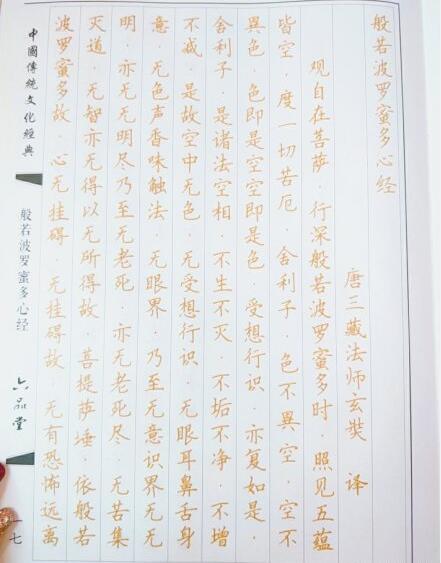 般若波罗蜜多心经
唐三藏法师玄奘 译
观自在菩萨·行深般若波罗蜜多时·照见五蕴
皆空·度一切苦厄·舍利子·色不異空·空不
異色·色即是空空即是色·受想行识·亦复如是·
舍利子·是诸法空相·不生不灭·不垢不净·不增
不减·是故空中无色·无受想行识·无眼耳鼻舌身
意·无色声香味触法·无眼界·乃至无意识界无无
明·亦无无明尽乃至无老死·亦无老死尽·无苦集
灭道·无智亦无得以无所得故·菩提萨埵·依般若
波罗蜜多故·心无挂碍·无挂碍故·无有恐怖远离
中國傳統文化經典
般若波罗蜜多心经
六品堂
一七